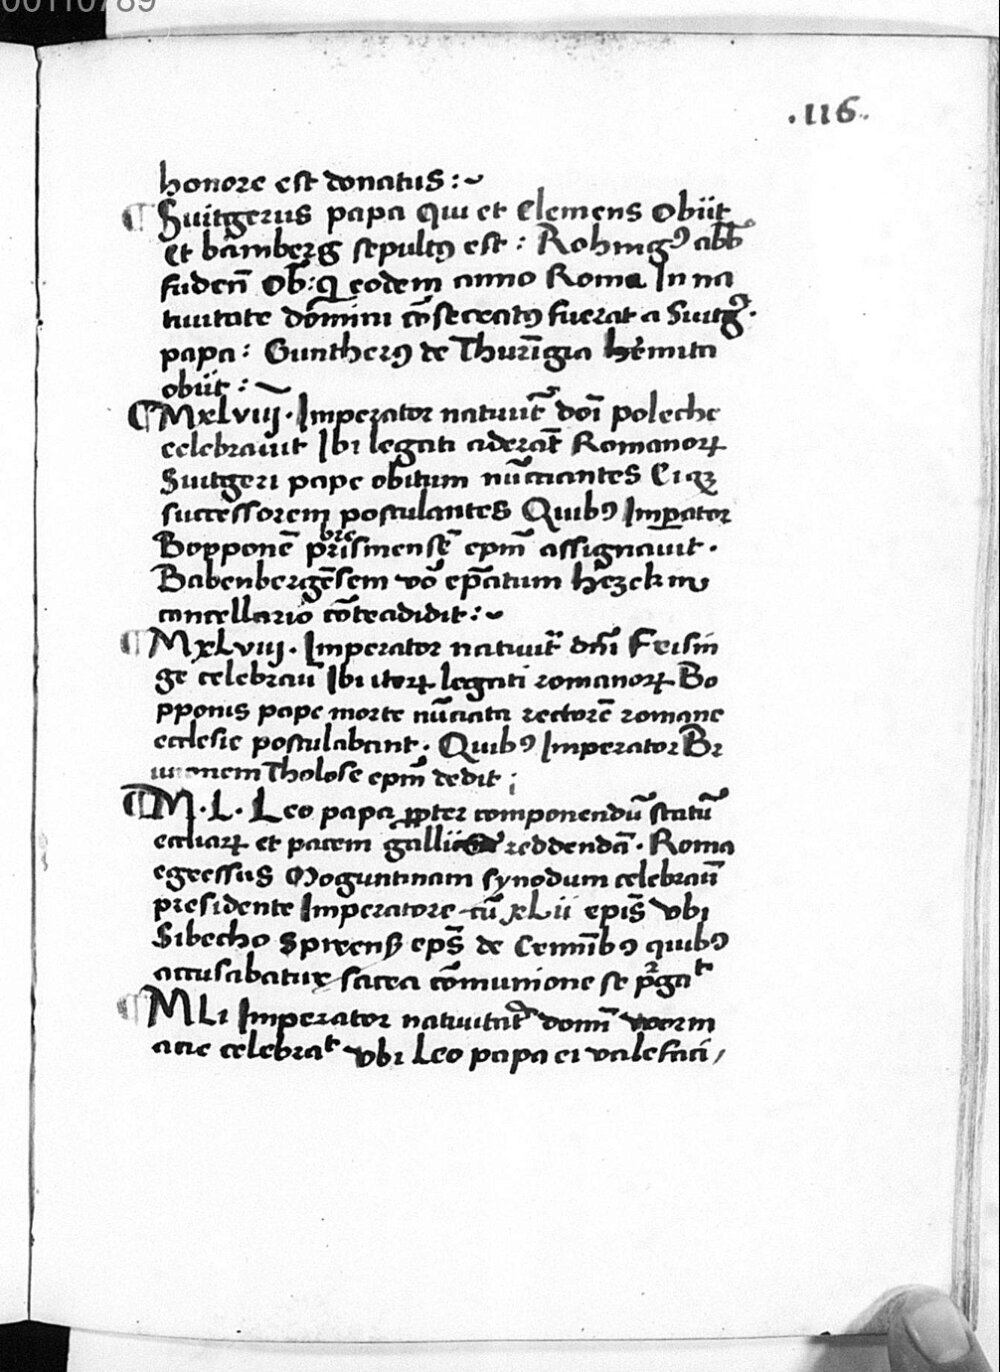 00110789
.116.
honore est donatus :~
¶ Suitgerus papa qui et Clemens Obiit
Et bamberg sepultꝰ est : Rohingꝰ abb̄
fuden̄ Ob̄: q eodem anno Roma In na
tiuitate dōmini cōsecratꝰ fuerat a Suitgꝰ.
papa : Guntherꝰ de Thurīgia hēmita
obiit :~
¶ Mxlviij. Imperator natiuit̄ doī poleche
celebrauit Ibi legati aderāt Romanorꝝ
Suitgeri pape obitum nūcciantes Eiqꝫ
successorem postulantes Quibꝰ Imꝑator
Bopponē prismensē epm̄ assignauit .
Babenbergēsem vō ep̄atum hēzekino
cancellario cōtradidit :~
¶ Mxlviij. Imperator natiuit̄ dn̄i Frisin
ge celebrau̅ Ibi iterꝝ legati romanorꝝ Bo
pponis pape morte nūciata rectorē romane
ecclesie postulabant . Quibꝰ Imperator Br
unonem Tholose epm̄ dedit ;
¶ M.L. Leo papa ꝓpter componendū statū
eccliarꝝ et pacem gallii reddendā . Roma
egressus Moguntinam synodum celebrau̅
presidente Imperatore cū xLii epis̄ vbi
Sibecho Spirensꝭ eps̄ de Crīmibꝰ quibꝰ
accusabatur sacra cōmunione se p̄gat
¶ MLi Imperator natiuitat̄ domi̅ worm
acie celebrat vbi Leo papa ei valefaci,